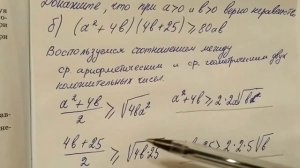 Докажите, что при а>0 и в>0 верно неравенство
б) (а² + 4в)(4в + 25) ≥ 80ав
Воспользуемся соотношением между
ср. арифметическим и ср. геометрическим двух
положительных чисел.
(а² + 4в)/2 ≥ √4ва² а² + 4в ≥ 2·2а√в
(4в + 25)/2 ≥ √4в·25 ≥ 2·2·5√в